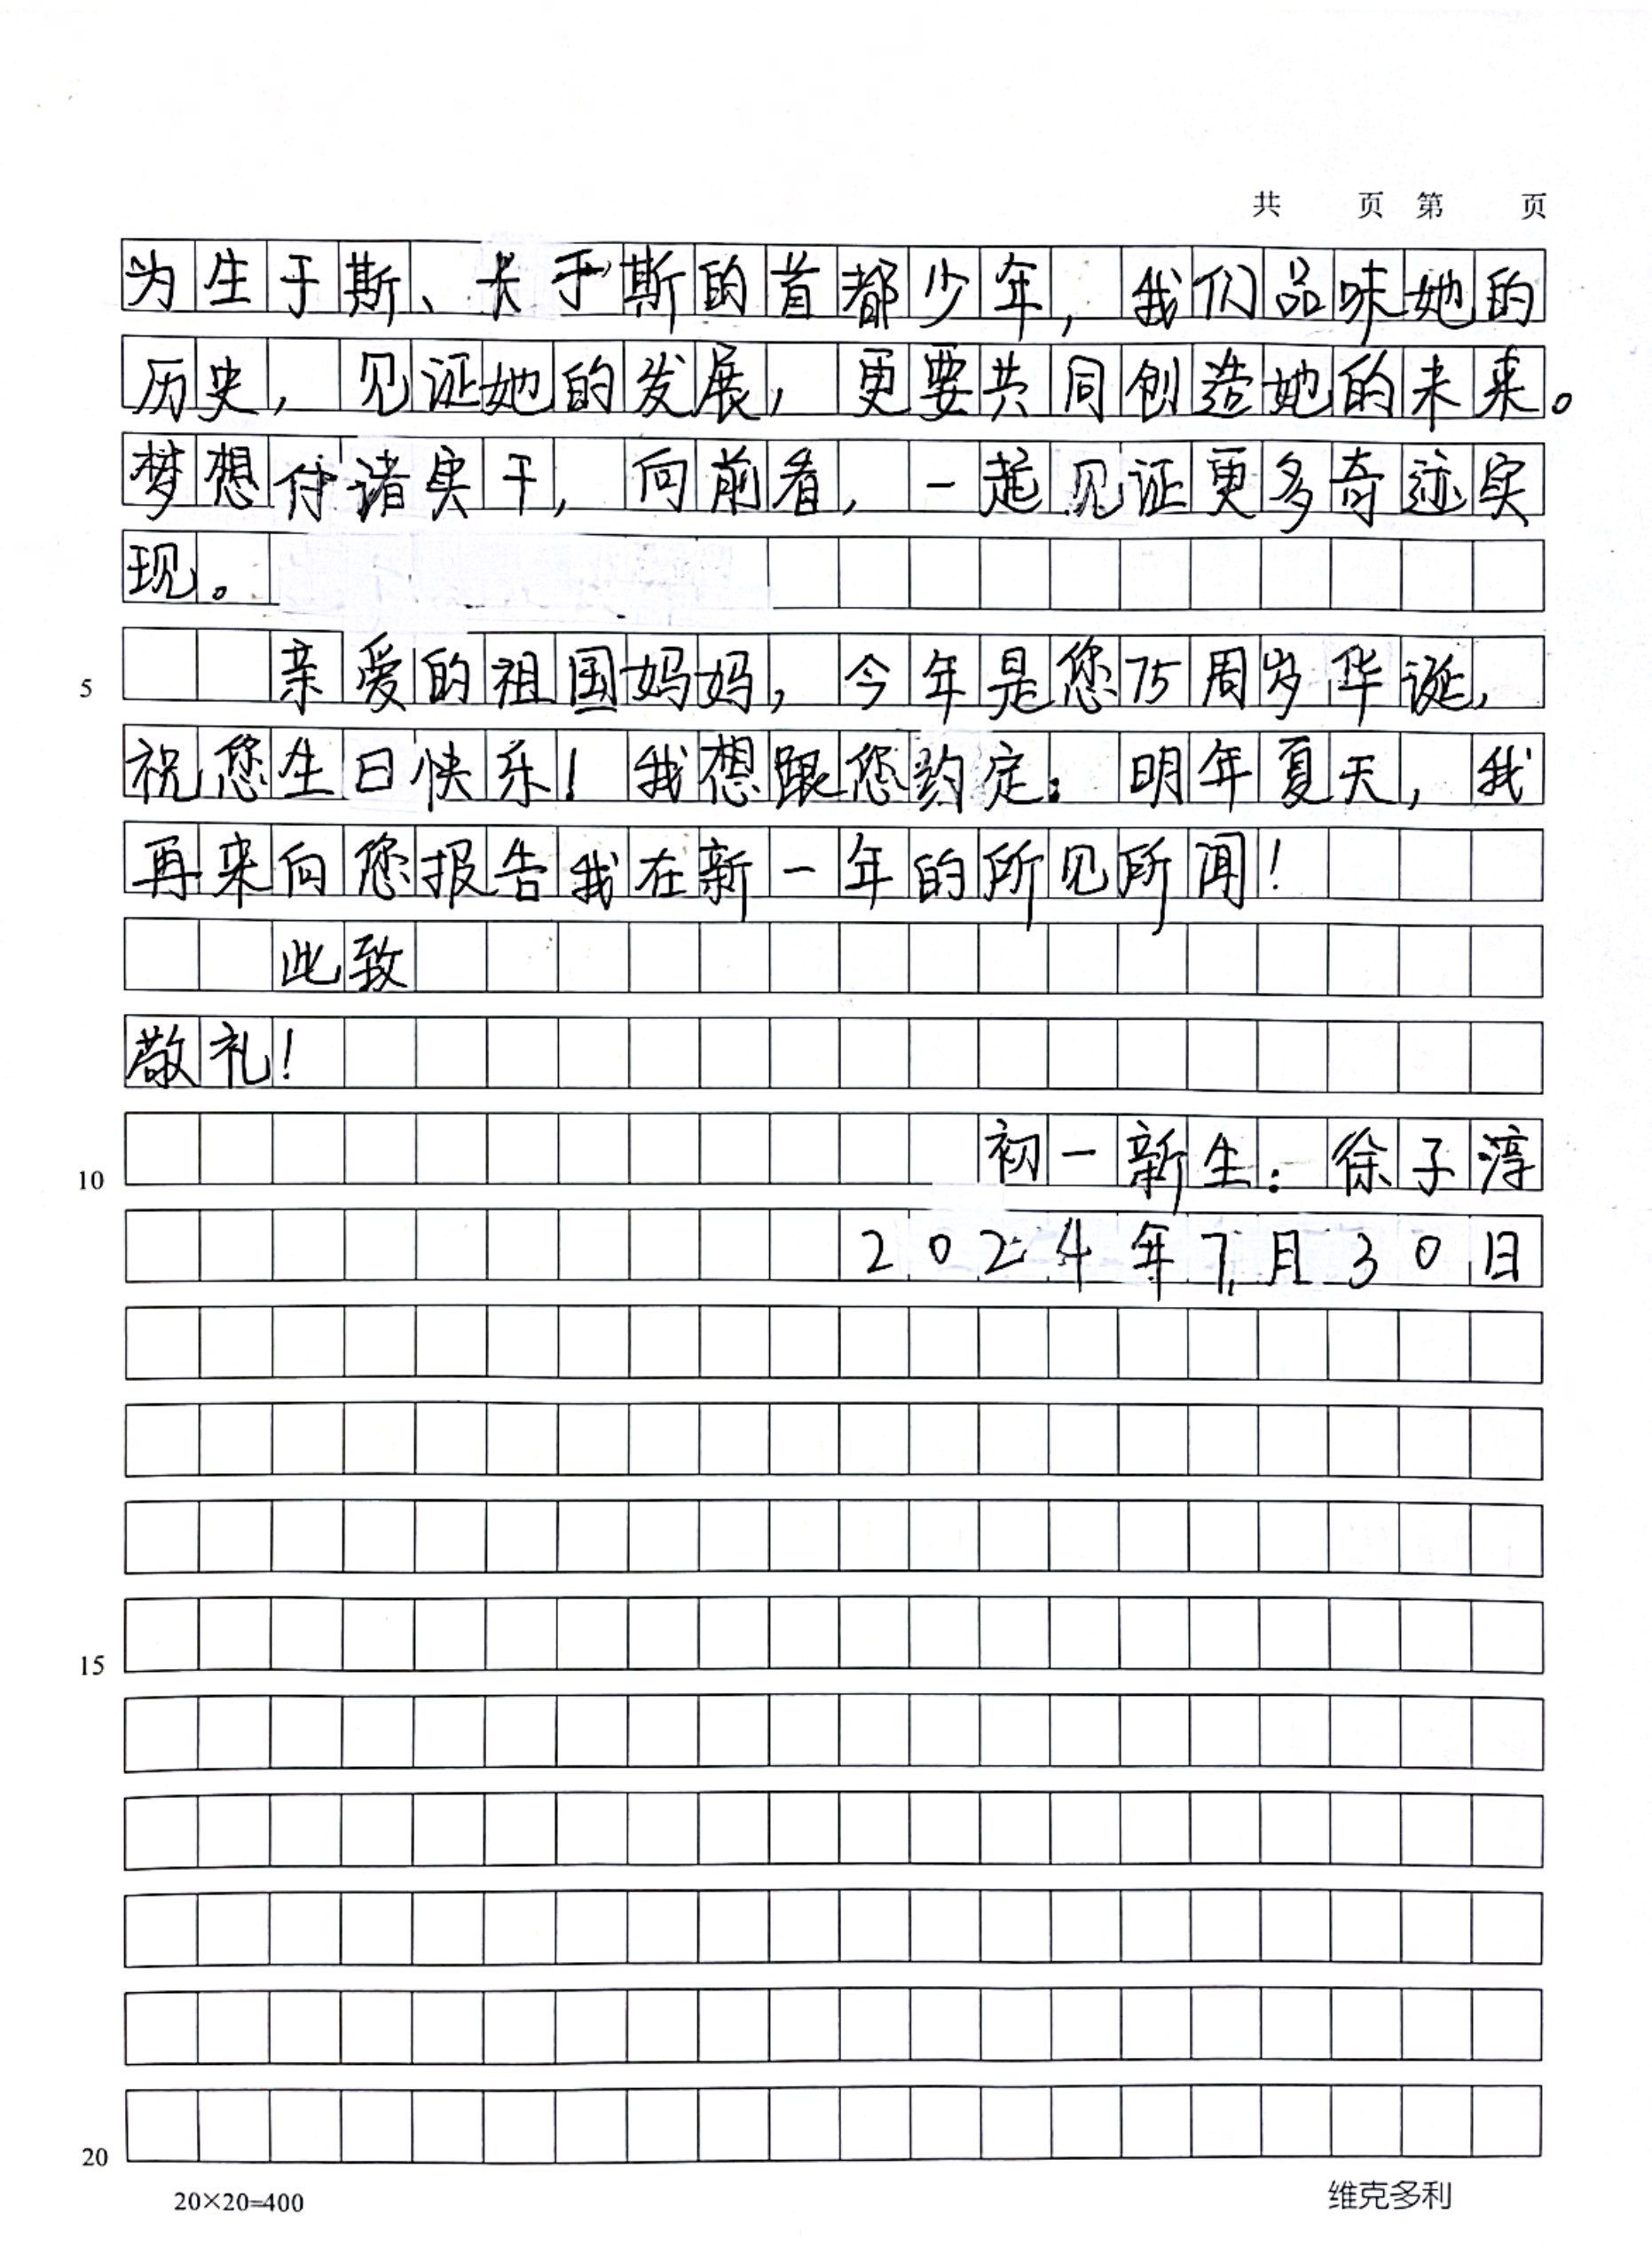 共 页 第 页
为生于斯、长于斯的首都少年，我们品味她的
历史，见证她的发展，更要共同创造她的未来。
梦想付诸实干，向前看，一起见证更多奇迹实
现。
5 亲爱的祖国妈妈，今年是您75周岁华诞，
祝您生日快乐！我想跟您约定：明年夏天，我
再来向您报告我在新一年的所见所闻！
此致
敬礼！
10 初一新生：徐子淳
2024年7月30日
15
20
20×20=400 维克多利